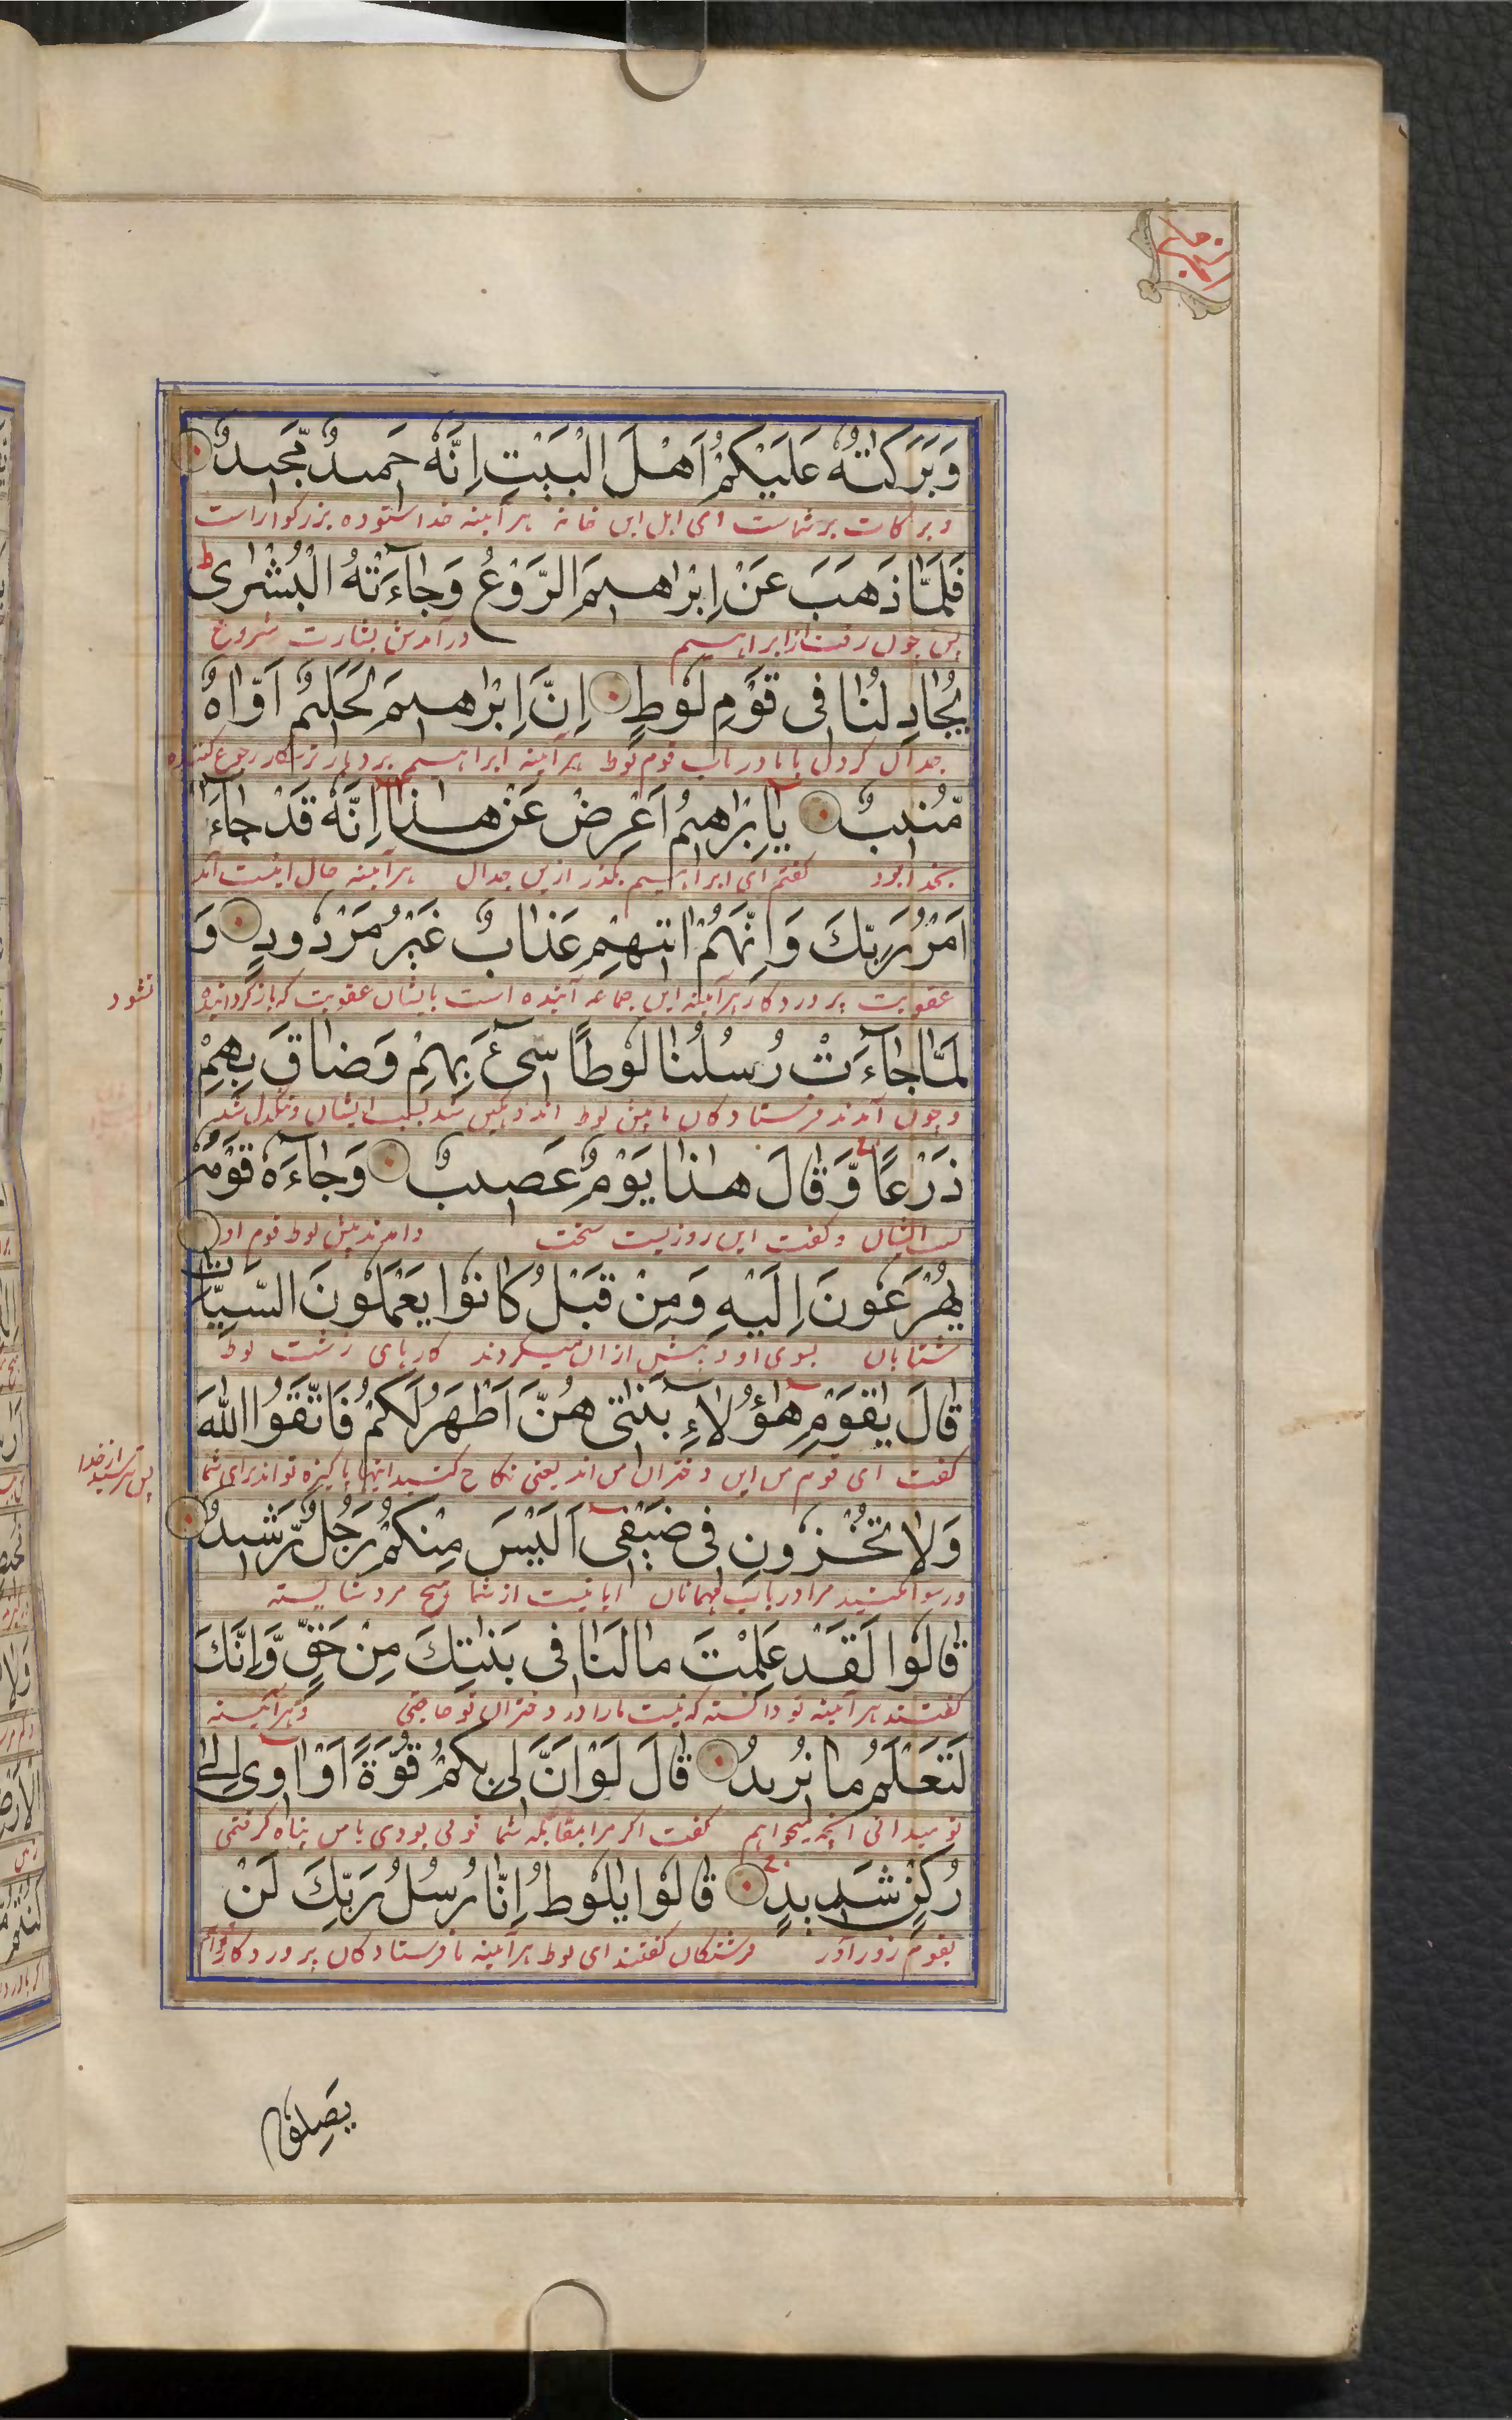 وَبَرَكٰتُهٗ عَلَيْكُمْ اَهْلَ الْبَيْتِ اِنَّهٗ حَمِيدٌ مَّجِيدٌ
وبركات بر شماست ای اهل این خانه هرآینه خدا ستوده بزرکوار است
فَلَمَّا ذَهَبَ عَنْ اِبْرٰاهِيمَ الرَّوْعُ وَجٰاءَتْهُ الْبُشْرٰى ط
پس چون رفت از ابراهیم درآمدش بشارت شروع
يُجٰادِلُنٰا فِى قَوْمِ لُوطٍ اِنَّ اِبْرٰاهِيمَ لَحَلِيمٌ اَوّٰاهٌ
جدال کردن با ما در باب قوم لوط هرآینه ابراهیم بردبار ترسکار رجوع کننده
مُّنِيبٌ يٰاِبْرٰاهِيمُ اَعْرِضْ عَنْ هٰذٰا اِنَّهٗ قَدْ جٰاءَ
بخدا بود کفتم ای ابراهیم بکذر ازین جدال هرآینه حال اینست آمد
اَمْرُ رَبِّكَ وَاِنَّهُمْ اٰتِيهِمْ عَذٰابٌ غَيْرُ مَرْدُودٍ وَ
عقوبت پروردکار هرآینه این جماعه آینده است بایشان عقوبت که بازکردانیده
نشود
لَمّٰا جٰاءَتْ رُسُلُنٰا لُوطًا سِىءَ بِهِمْ وَضٰاقَ بِهِمْ
وچون آمدند فرستادکان ما پیش لوط اندوهکین شد بسبب ایشان وتنکدل شد
ذَرْعًا وَّقٰالَ هٰذٰا يَوْمٌ عَصِيبٌ وَجٰاءَهٗ قَوْمُهٗ
بسبب ایشان وکفت این روزیست سخت وامدند پیش لوط قوم او
يُهْرَعُونَ اِلَيْهِ وَمِنْ قَبْلُ كٰانُوا يَعْمَلُونَ السَّيِّاٰتِ
شتابان بسوی او وپیش ازان میکردند کارهای زشت لوط
قٰالَ يٰقَوْمِ هٰؤُلٰاءِ بَنٰتِى هُنَّ اَطْهَرُ لَكُمْ فَاتَّقُوا اللّٰهَ
کفت ای قوم من این دختران من اند یعنی نکاح کنید اینها پاکیزه تراند برای شما
پس بترسید از خدا
وَلٰا تُخْزُونِ فِى ضَيْفِى اَلَيْسَ مِنْكُمْ رَجُلٌ رَّشِيدٌ
ورسوا مکنید مرا در باب مهمانان ایا نیست از شما هیچ مرد شایسته
قٰالُوا لَقَدْ عَلِمْتَ مٰا لَنٰا فِى بَنٰتِكَ مِنْ حَقٍّ وَّاِنَّكَ
کفتند هرآینه تو دانسته که نیست مارا در دختران تو حاجتی وهرآیینه
لَتَعْلَمُ مٰا نُرِيدُ قٰالَ لَوْ اَنَّ لِى بِكُمْ قُوَّةً اَوْ اٰوِى اِلٰى
تو میدانی آنچه میخواهیم کفت اکر مرا بمقابله شما قوتی بودی یا من پناه کرفتمی
رُكْنٍ شَدِيدٍ قٰالُوا يٰلُوطُ اِنّٰا رُسُلُ رَبِّكَ لَنْ
بقوم زورآور فرشتکان کفتند ای لوط هرآینه ما فرستادکان پروردکار توایم
يَصِلُوا